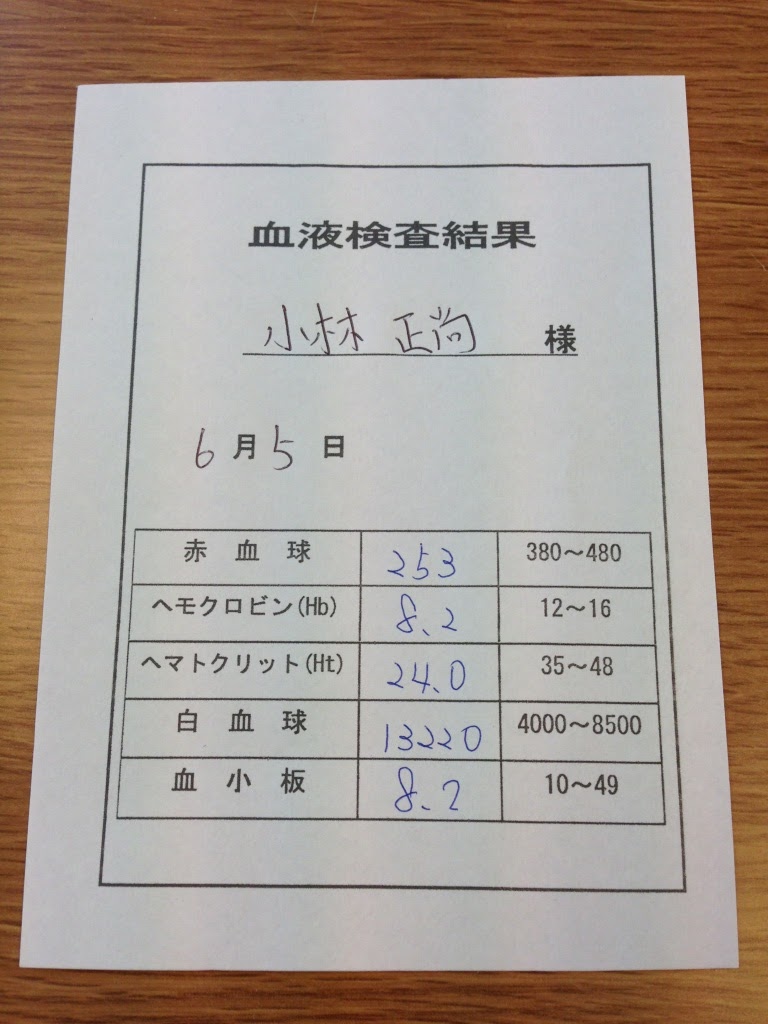 血液検査結果
小林 正尚 様
6月5日
赤血球 253 380～480
ヘモクロビン(Hb) 8.2 12～16
ヘマトクリット(Ht) 24.0 35～48
白血球 13220 4000～8500
血小板 8.2 10～49